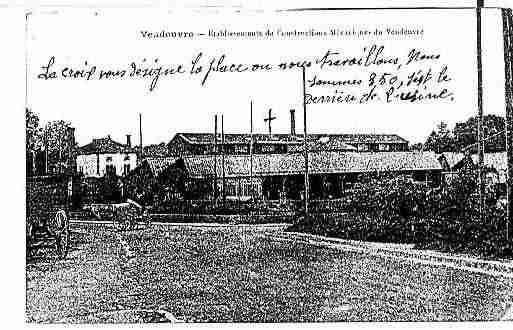 Vendouvre — Etablissements de Constructions Mécaniques de Vendeuvre
La croix vous désigne la place ou nous travaillons, Nous
sommes 350, c'est le
derrière de l'usine.